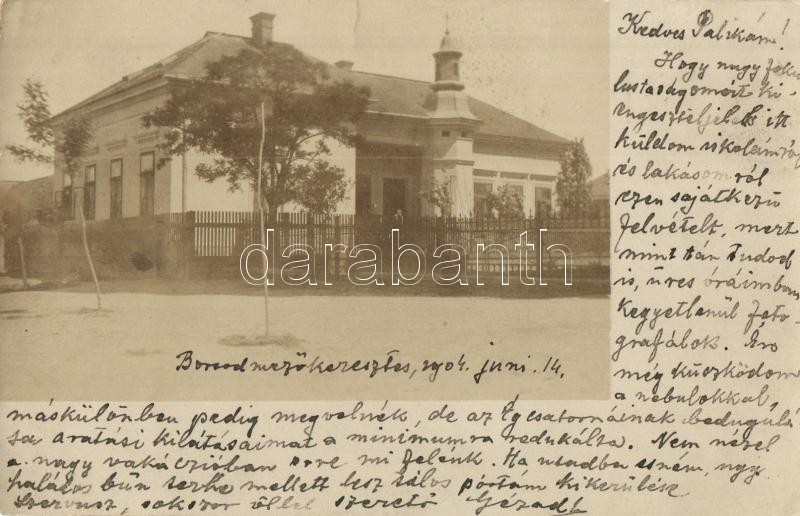 Kedves Palikám!
Hogy nagy
lustaságomért ki-
engeszteljelek itt
küldöm iskolámról
és lakásomról
ezen sajátkezű
felvételt, mert
mint tán tudod
is, üres óráimban
kegyetlenül foto-
grafálok.
még küszködöm
a nebulokkal,
Borsodmezőkeresztes, 1904. juni. 14.
máskülönben pedig megvolnék, de az égcsatornáinak bedugulá-
sa aratási kilátásaimat a minimumra redukálta. Nem
a nagy vakációban mi felénk. Ha
halálos bűn terhe mellett lesz tilos portám kikerülése
Szervusz, sokszor ölel szerető Gézád
darabanth